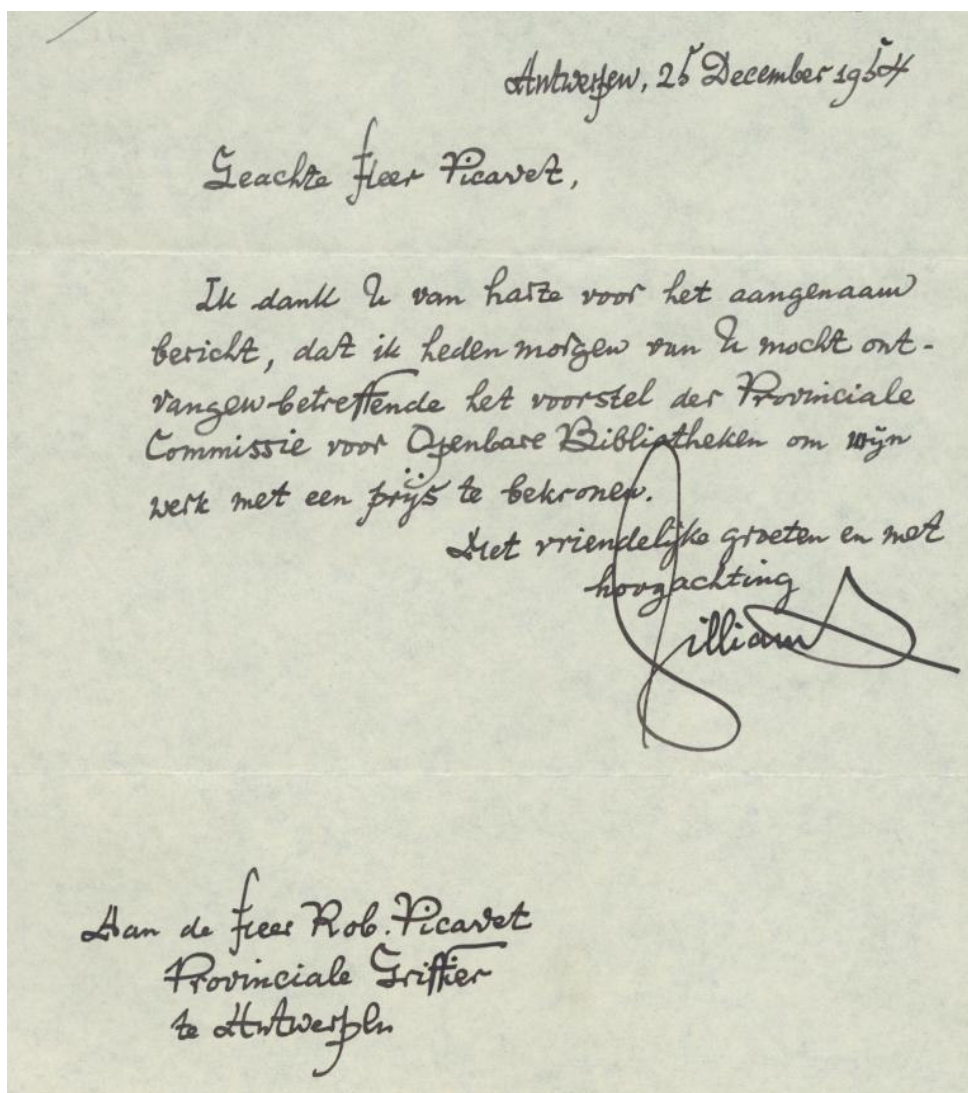 Antwerpen, 25 December 1954
Geachte Heer Picavet,
Ik dank U van harte voor het aangenaam
bericht, dat ik heden morgen van U mocht ont-
vangen betreffende het voorstel der Provinciale
Commissie voor Openbare Bibliotheken om mijn
werk met een prijs te bekronen.
Met vriendelijke groeten en met
hoogachting
Gilliams
Aan de Heer Rob. Picavet
Provinciale Griffier
te Antwerpen